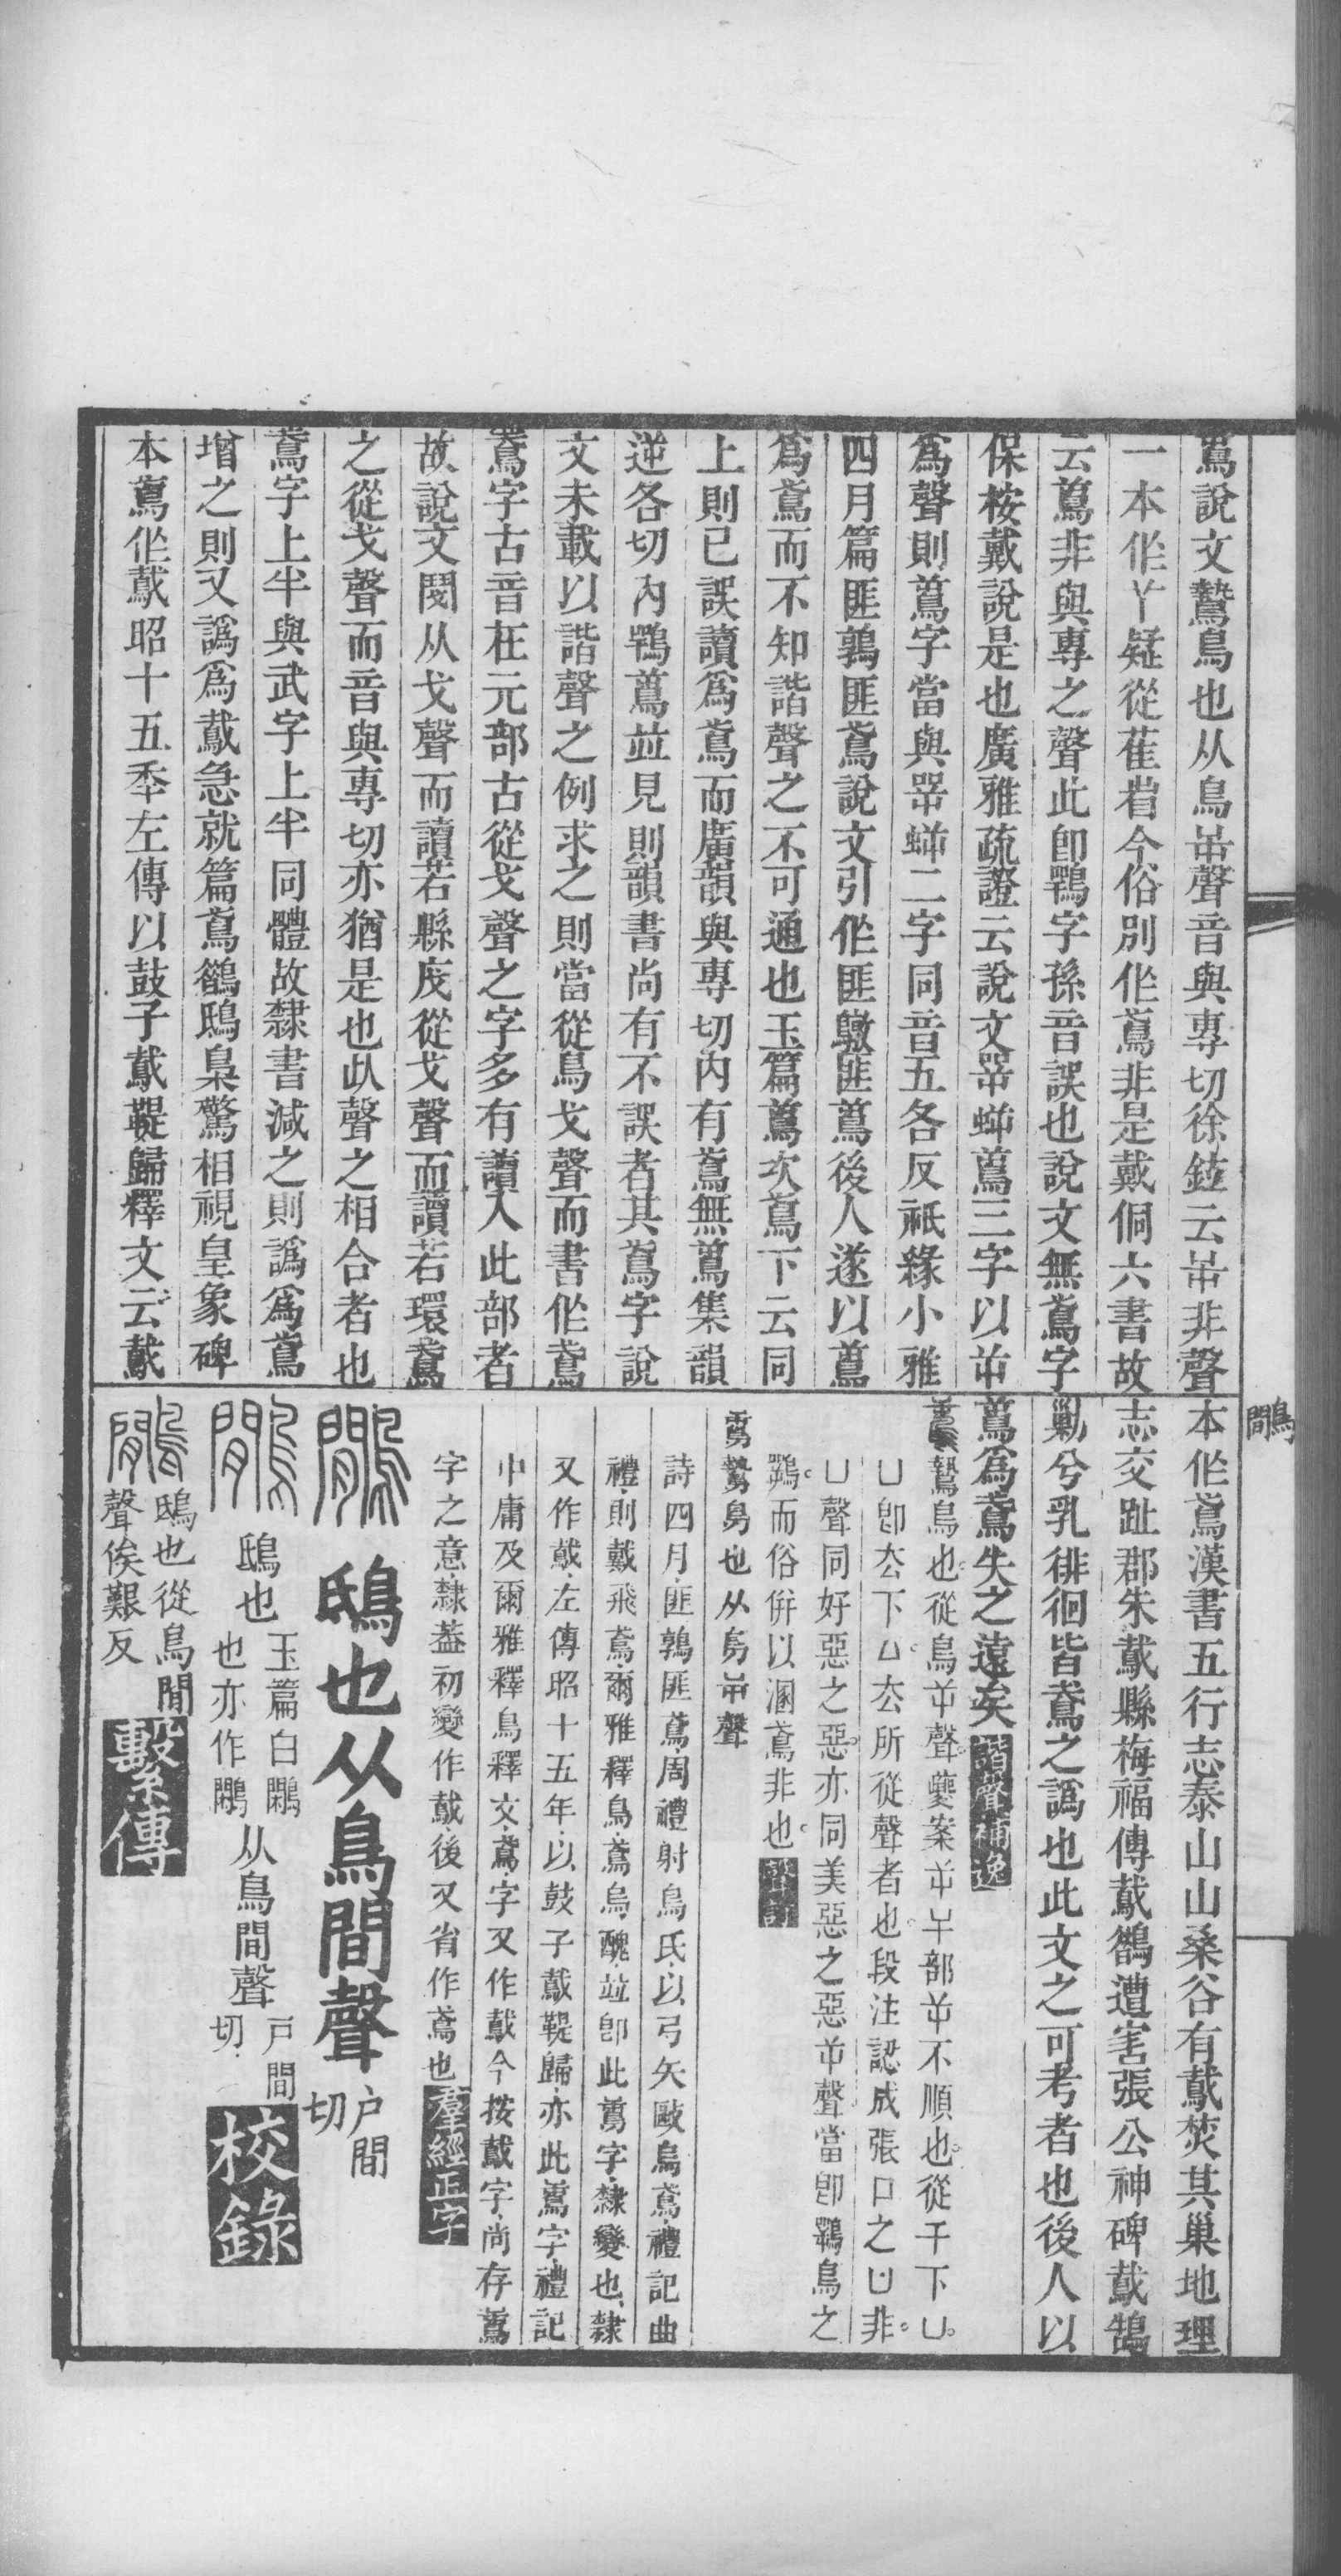 鷻說文鷙鳥也从鳥屰聲音與專切徐鉉云屰非聲
一本作丫疑從雈省今俗別作鳶非是戴侗六書故
云蔦非與專之聲此卽鶚字孫音誤也說文無鳶字
保桉戴說是也廣雅疏證云說文咢𧊧蔦三字以屰
爲聲則蔦字當與咢𧊧二字同音五各反祇緣小雅
四月篇匪鶉匪鳶說文引作匪𪆻匪蔦後人遂以蔦
爲鳶而不知諧聲之不可通也玉篇蔦次鳶下云同
上則已誤讀爲鳶而廣韻與專切內有鳶無蔦集韻
逆各切內鶚蔦竝見則韻書尚有不誤者其鳶字說
文未載以諧聲之例求之則當從鳥戈聲而書作鳶
鳶字古音在元部古從戈聲之字多有讀入此部者
故說文閿从戈聲而讀若縣㦿從戈聲而讀若環鳶
之從戈聲而音與專切亦猶是也㕥聲之相合者也
鳶字上半與武字上半同體故隸書減之則譌爲鳶
增之則又譌爲䳒急就篇鳶鵒鴟梟驚相視皇象碑
本鳶作䳒昭十五秊左傳以鼓子䳒鞮歸釋文云䳒
本作鳶漢書五行志泰山山桑谷有䳒焚其巢地理
志交趾郡朱䳒縣梅福傳䳒鵒遭害張公神碑䳒鵠
剿兮乳徘徊皆鳶之譌也此文之可考者也後人以
蔦爲鳶失之遠矣諧聲補逸
鷙鳥也從鳥屰聲夔案屰𢆉部屰不順也從干下凵
凵卽𠫓下厶𠫓所從聲者也段注認成張口之凵非
凵聲同好惡之惡亦同美惡之惡屰聲當卽鶚鳥之
鶚而俗併以溷鳶非也
鷙鳥也从鳥屰聲
詩四月匪鶉匪鳶周禮射鳥氏以弓矢敺烏鳶禮記曲
禮則戴飛鳶爾雅釋鳥鳶烏醜竝卽此蔦字隸變也隸
又作䳒左傳昭十五年以鼓子䳒鞮歸亦此蔦字禮記
中庸及爾雅釋鳥釋文鳶字又作䳒今按䳒字尚存蔦
字之意隸葢初變作䳒後又省作鳶也羣經正字
鷴
鴟也从鳥間聲戶間切
鴟也玉篇白鷴也亦作鷼从鳥間聲戶間切校錄
鴟也從鳥閒聲俟艱反繫傳
鷴